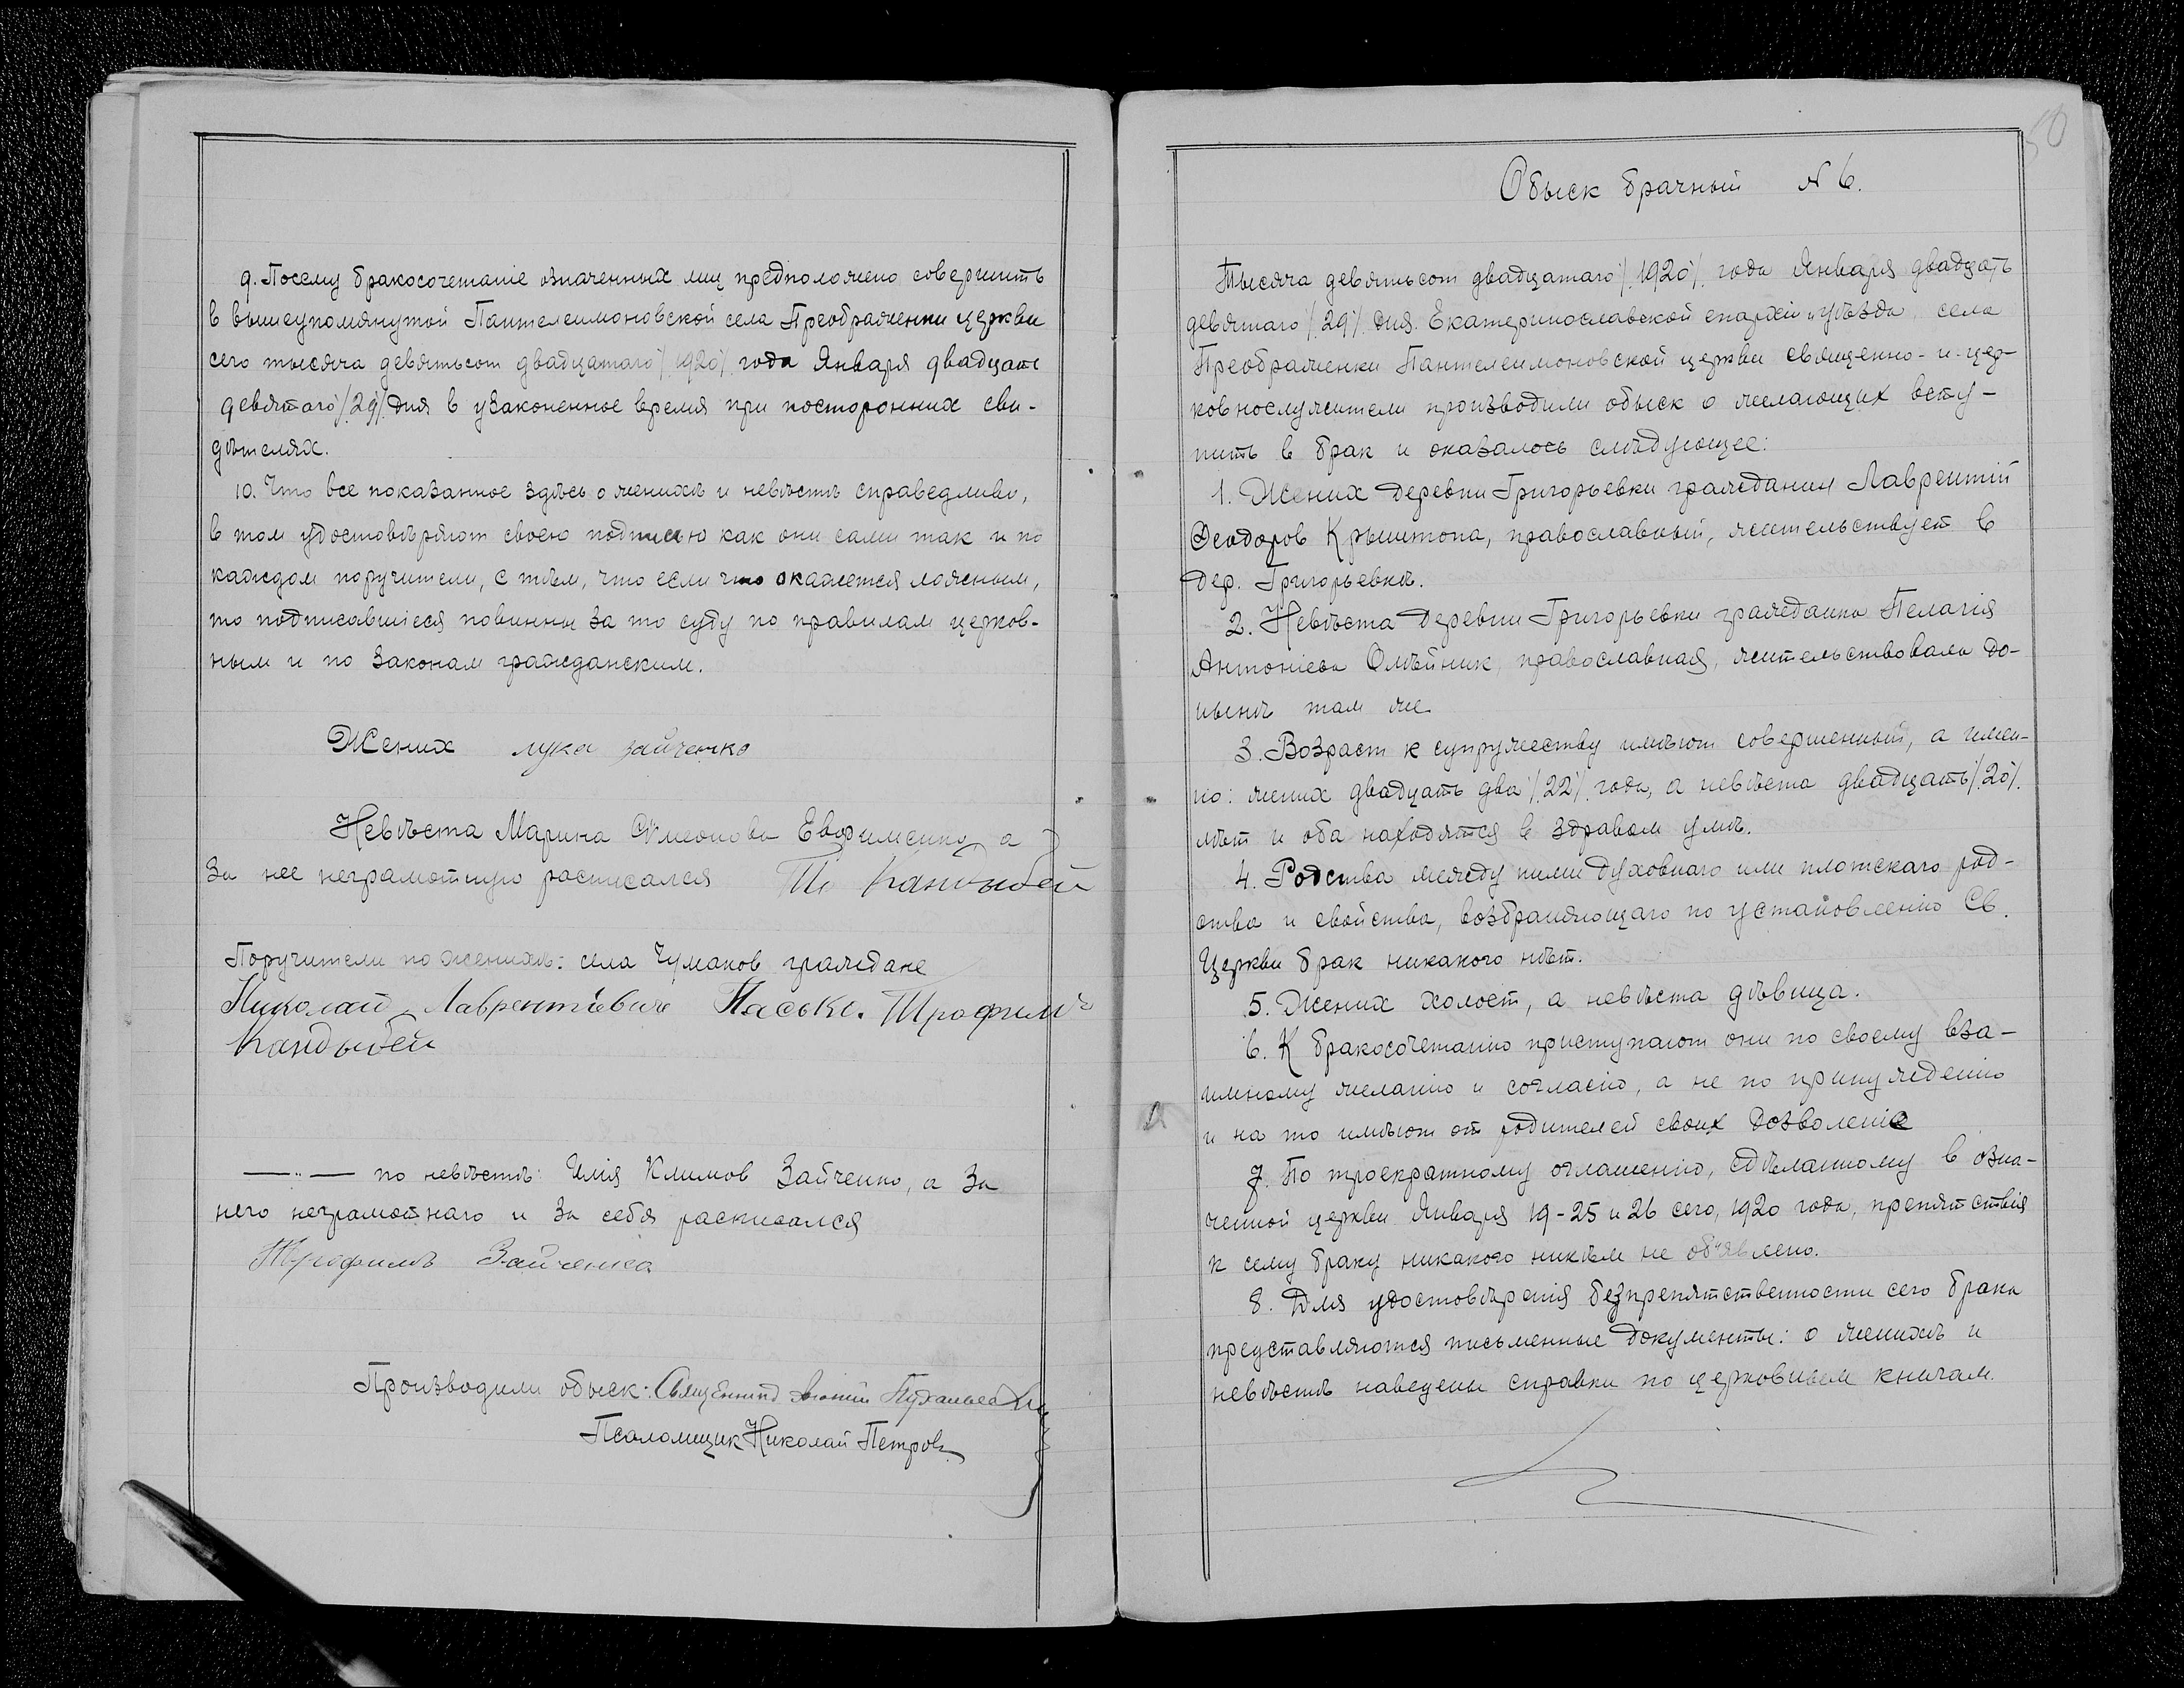 9. Посему бракосочетаніе означенных лиц предположено совершить
в вышеупомянутой Пантелеимоновской села Преображенки церкви
сего тысяча девятьсот двадцатаго /1920/ года Января двадцать
девятаго /29/ дня в узаконенное время при посторонних сви-
дѣтелях.
10. Что все показанное здѣсь о женихѣ и невѣстѣ справедливо,
в том удостовѣряют своею подписью как они сами так и по
каждом поручители, с тѣм, что если что окажется ложным,
то подписавшіеся повинны за то суду по правилам церков-
ным и по законам гражданским.
Жених лука зайченко
Невѣста Марина Сѵмеонова Евфименко, а
за нее неграмотную расписался Тр Кандыбей
Поручители по женихѣ: села Чумаков граждане
Николай Лаврентіевичъ Пасько. Трофимъ
Кандыбей
—〃— по невѣстѣ: Илія Климов Зайченко, а за
него неграмотнаго и за себя расписался
Трофимъ Зайченко
Производили обыск: Священник
Псаломщик Николай Петров
50
Обыск брачный № 6.
Тысяча девятьсот двадцатаго /1920/ года Января двадцать
девятаго /29/ дня. Екатеринославской епархіи и уѣзда, села
Преображенки Пантелеимоновской церкви священно- и цер-
ковнослужители производили обыск о желающих всту-
пить в брак и оказалось слѣдующее:
1. Жених деревни Григорьевки гражданин Лаврентій
Феодоров Крыштопа, православный, жительствует в
дер. Григорьевкѣ.
2. Невѣста деревни Григорьевки гражданка Пелагія
Антоніева Олѣйник, православная, жительствовала до-
нынѣ там же
3. Возраст к супружеству имѣют совершенный, а имен-
но: жених двадцать два /22/ года, а невѣста двадцать /20/
лѣт и оба находятся в здравом умѣ.
4. Родства между ними духовнаго или плотскаго род-
ства и свойства, возбраняющаго по установленію Св.
Церкви брак никакого нѣт.
5. Жених холост, а невѣста дѣвица.
6. К бракосочетанію приступают они по своему вза-
имному желанію и согласію, а не по принужденію
и на то имѣют от родителей своих дозволеніе
7. По троекратному оглашенію, сдѣланному в озна-
ченной церкви Января 19-25 и 26 сего, 1920 года, препятствія
к сему браку никакого никѣм не объявлено.
8. Для удостовѣренія безпрепятственности сего брака
представляются письменные документы: о женихѣ и
невѣстѣ наведены справки по церковным книгам.